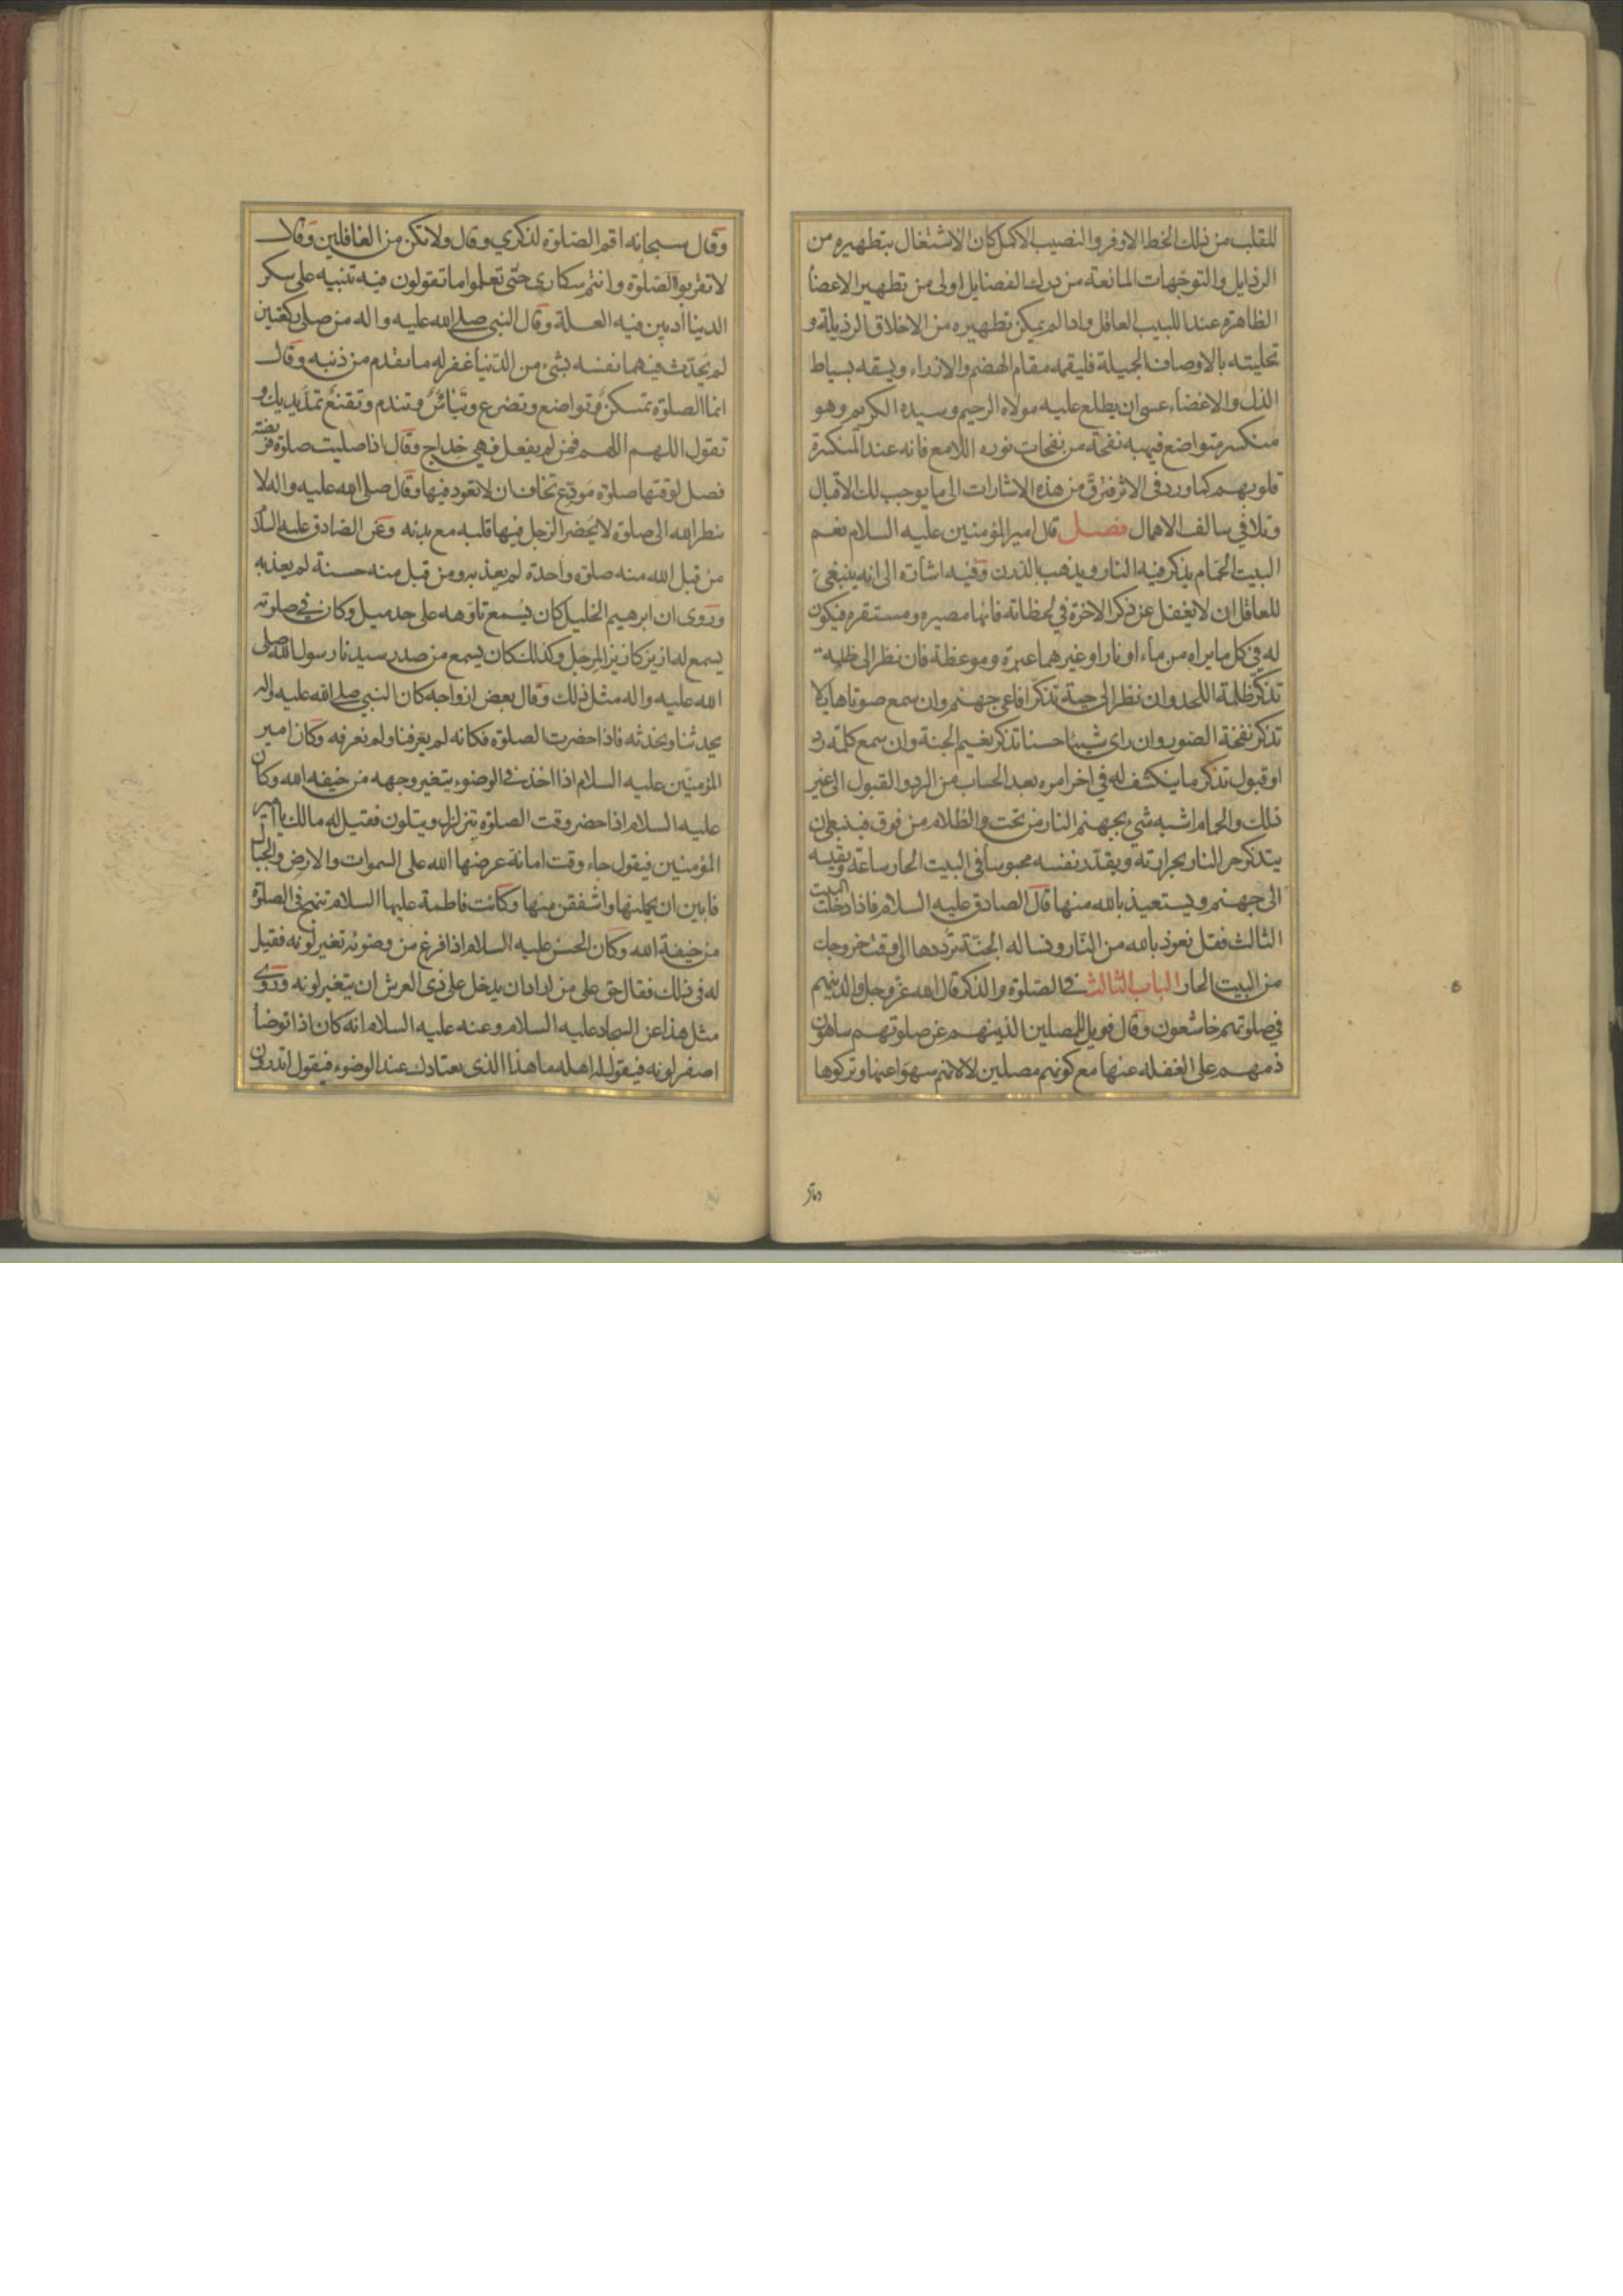 للقلب من ذلك الحظ الاوفر والنصيب الاكمل كان الاشتغال بتطهيره من
الرذايل والتوجهات المانعة من درك الفضايل اولى من تطهير الاعضأ
الظاهرة عند اللبيب العاقل واذا لم يمكن تطهيره من الاخلاق الرذيلة و
تحليته بالاوصاف الجميلة فليقمه مقام الهضم والازراء ويسقه بسياط
الذل والاغضاء عسى ان يطلع عليه مولاه الرحيم وسيده الكريم وهو
منكسر متواضع فيهبه نفحة من نفحات نوره اللامع فانه عند المنكسرة
قلوبهم كما ورد في الاثر فترق من هذه الاشارات الى ما يوجب لك الاقبال
وتلافي سالف الاهمال فصل قال امير المؤمنين عليه السلام نعم
البيت الحمام يذكر فيه النار ويذهب بالدرن وفيه اشارة الى انه ينبغي
للعاقل ان لا يغفل عن ذكر الاخرة في لحظاته فانها مصيره ومستقره فيكون
له في كل ما يراه من ماء او نار او غيرهما عبرة وموعظة فان نظر الى ظلمة
تذكر ظلمة اللحد وان نظر الى حية تذكر افاعي جهنم وان سمع صوتا هايلا
تذكر نفخة الصور وان راى شيئا حسنا تذكر نعيم الجنة وان سمع كلمة رد
او قبول تذكر ما ينكشف له في اخر امره بعد الحساب من الرد والقبول الى غير
ذلك والحمام اشبه شيء بجهنم النار من تحت والظلام من فوق فينبغي ان
يتذكر حر النار بحرارته ويقدر نفسه محبوسا في البيت الحار ساعة ويقيسه
الى جهنم ويستعيذ بالله منها قال الصادق عليه السلام فاذا دخلت البيت
الثالث فقل نعوذ بالله من النار ونساله الجنة ترددها الى وقت خروجك
من البيت الحار الباب الثالث في الصلوة والذكر قال الله عز وجل والذينهم
في صلوتهم خاشعون وقال فويل للمصلين الذينهم عن صلوتهم ساهون
ذمهم على الغفله عنها مع كونهم مصلين لا لانهم سهوا عنها وتركوها
وقال سبحانه اقم الصلوة لذكري وقال ولا تكن من الغافلين وقال
لا تقربوا الصلوة وانتم سكارى حتى تعلموا ما تقولون فيه تنبيه على سكر
الدنيا اذ بين فيه العلة وقال النبي صلى الله عليه واله من صلى ركعتين
لم يحدث فيهما نفسه بشيء من الدنيا غفر له ما تقدم من ذنبه وقال
انما الصلوة تمسكن وتواضع وتضرع وتبائس وتندم وتقنع تمد يديك و
تقول اللهم اللهم فمن لم يفعل فهي خداج وقال اذا صليت صلوة فريضة
فصل لوقتها صلوة مودع تخاف ان لا تعود فيها وقال صلى الله عليه واله لا
ينظر الله الى صلوة لا يحضر الرجل فيها قلبه مع بدنه وعن الصادق عليه السلام
من قبل الله منه صلوة واحدة لم يعذبه ومن قبل منه حسنة لم يعذبه
وروى ان ابرهيم الخليل كان يسمع تاوهه على حد ميل وكان في صلوته
يسمع له ازيز كازيز المرجل وكذلك كان يسمع من صدر سيدنا رسول الله صلى
الله عليه واله مثل ذلك وقال بعض ازواجه كان النبي صلى الله عليه واله
يحدثنا ونحدثه فاذا حضرت الصلوة فكانه لم يعرفنا ولم نعرفه وكان امير
المؤمنين عليه السلام اذا اخذ في الوضوء يتغير وجهه من خيفه الله وكان
عليه السلام اذا حضر وقت الصلوة يتزلزل ويتلون فقيل له مالك يا امير
المؤمنين فيقول جاء وقت امانة عرضها الله على السموات والارض والجبال
فابين ان يحملنها واشفقن منها وكانت فاطمة عليها السلام تنهج في الصلوة
من خيفة الله وكان الحسن عليه السلام اذا فرغ من وضوئه تغير لونه فقيل
له في ذلك فقال حق على من اراد ان يدخل على ذي العرش ان يتغير لونه وروى
مثل هذا عن السجاد عليه السلام وعنه عليه السلام انه كان اذا توضأ
اصفر لونه فيقول له اهله ما هذا الذي يعتادك عند الوضوء فيقول اتدرون